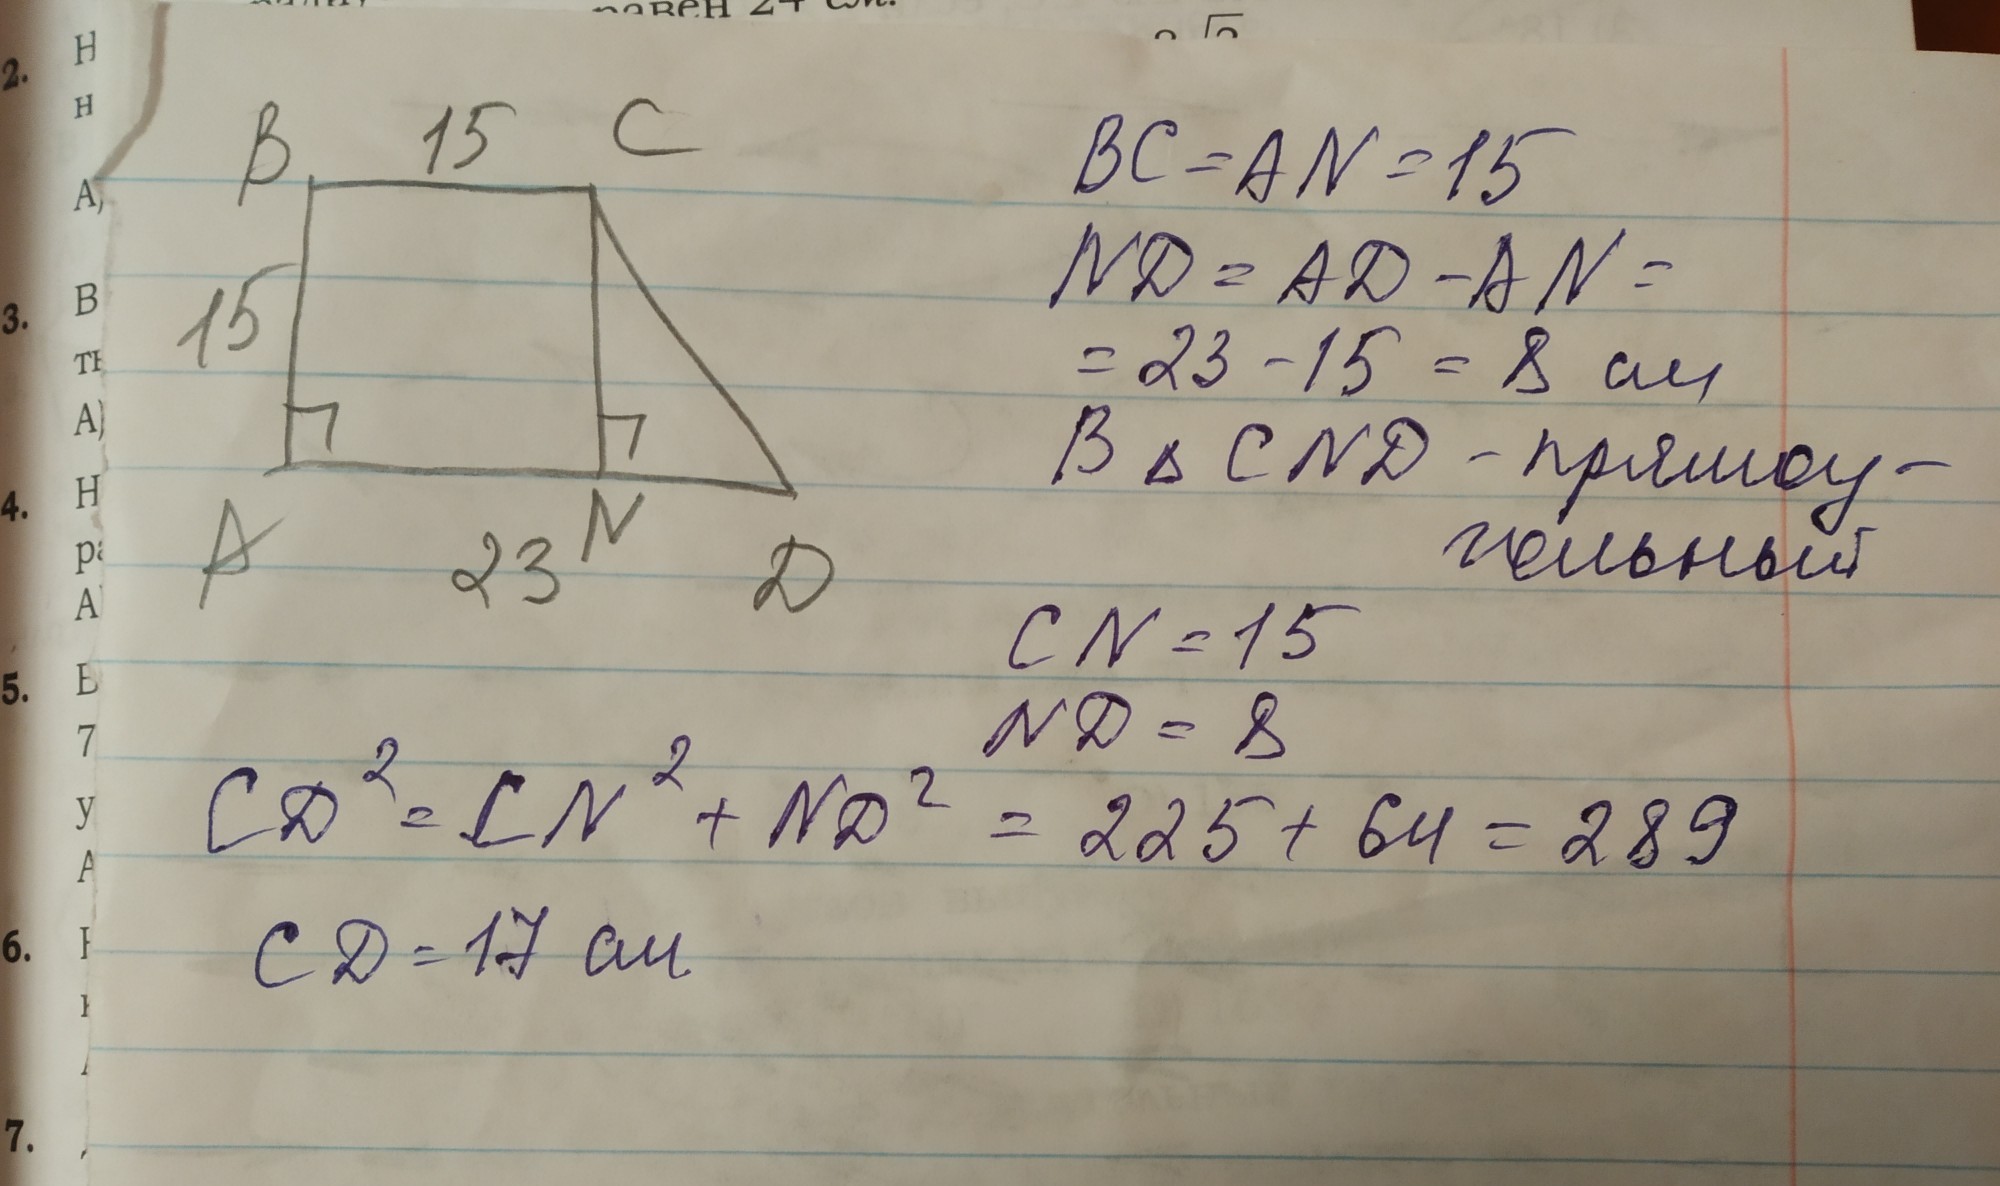 равен 24 см.
2.
Н
н
А)
3.
В
А)
4.
Н
А
5.
7
у
А
6.
7.
B 15 C
15
A 23 N D
BC = AN = 15
ND = AD - AN =
= 23 - 15 = 8 см
В Δ CND - прямоу-
гольный
CN = 15
ND = 8
CD² = CN² + ND² = 225 + 64 = 289
CD = 17 см